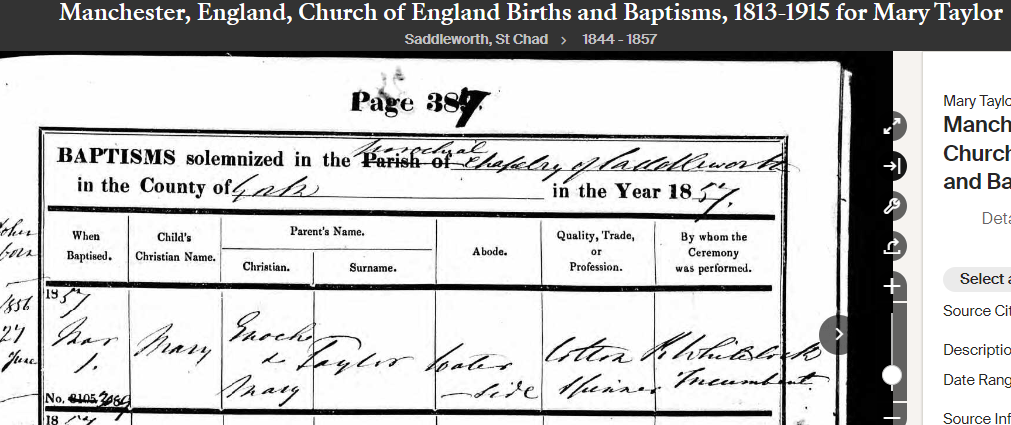 Manchester, England, Church of England Births and Baptisms, 1813-1915 for Mary Taylor
Saddleworth, St Chad > 1844 - 1857
Page 387
BAPTISMS solemnized in the Parish of Parochial Chapelry of Saddleworth
in the County of York in the Year 1857.
When Baptised.
Child's Christian Name.
Parent's Name.
Christian.
Surname.
Abode.
Quality, Trade, or Profession.
By whom the Ceremony was performed.
1857
Mar 1.
No. 3105
Mary
Enoch & Mary
Taylor
Water Side
Cotton Spinner
R. Whitelock Incumbent
18 57
John
born
1856
27
June
Mary Taylo
Manch
Church
and Ba
Deta
Select a
Source Cit
Descriptio
Date Rang
Source Inf